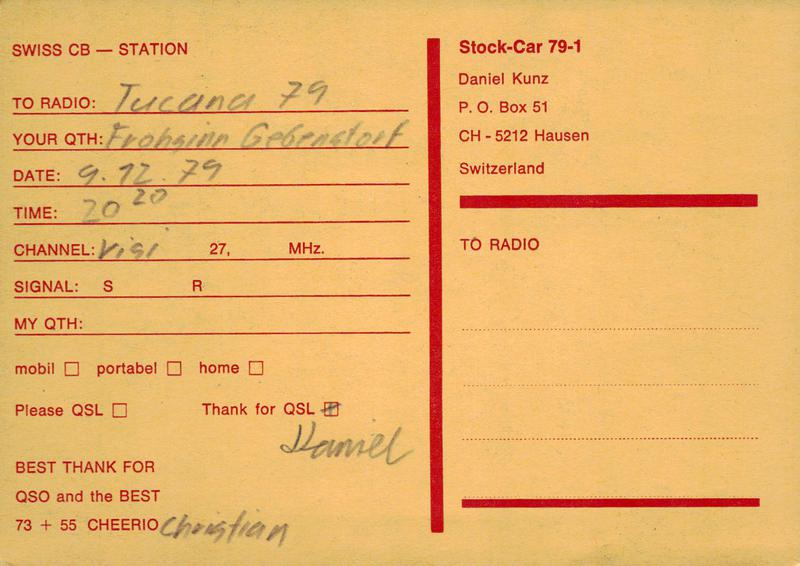 SWISS CB — STATION
TO RADIO: Tucana 79
YOUR QTH: Frohsinn Gebenstorf
DATE: 9.12.79
TIME: 20 20
CHANNEL: Visi 27, MHz.
SIGNAL: S R
MY QTH:
mobil ☐ portabel ☐ home ☐
Please QSL ☐ Thank for QSL ☒
Daniel
BEST THANK FOR
QSO and the BEST
73 + 55 CHEERIO Christian
Stock-Car 79-1
Daniel Kunz
P. O. Box 51
CH - 5212 Hausen
Switzerland
TO RADIO